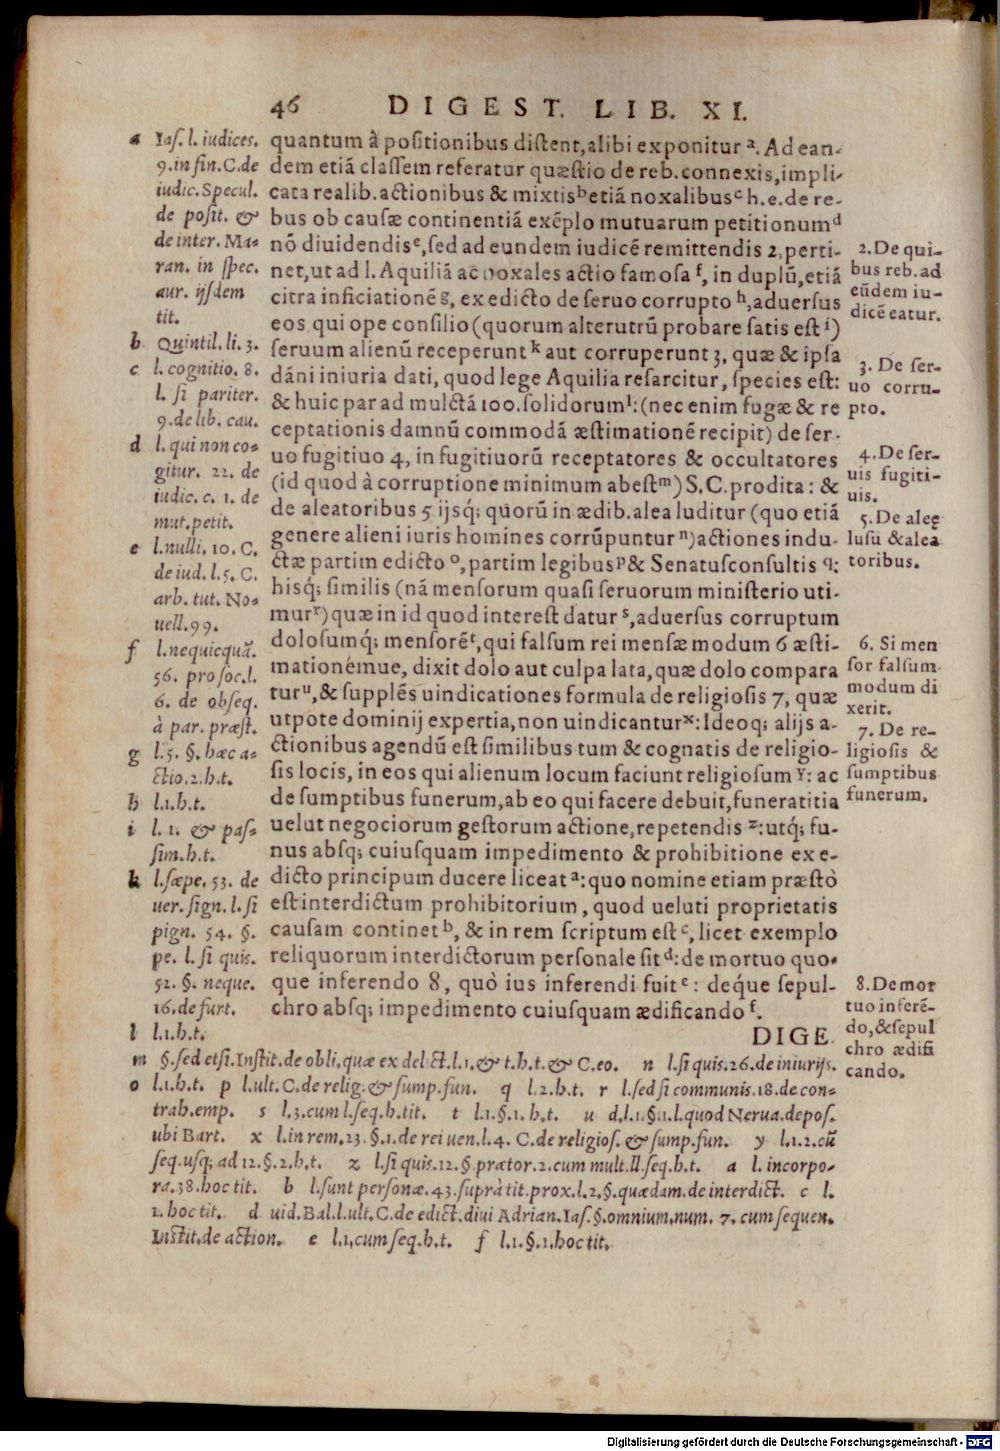 46 DIGEST. LIB. XI.
quantum à positionibus distent, alibi exponitur ᵃ. Ad ean-
dem etiā classem referatur quæstio de reb. connexis, impli-
cata realib. actionibus & mixtis ᵇ etiā noxalibus ᶜ h. e. de re-
bus ob causæ continentiā exēplo mutuarum petitionum ᵈ
nō diuidendis ᵉ, sed ad eundem iudicē remittendis 2, perti-
net, ut ad l. Aquiliā ac noxales actio famosa ᶠ, in duplū, etiā
citra inficiationē ᵍ, ex edicto de seruo corrupto ʰ, aduersus
eos qui ope consilio (quorum alterutrū probare satis est ⁱ)
seruum alienū receperunt ᵏ aut corruperunt 3, quæ & ipsa
dāni iniuria dati, quod lege Aquilia resarcitur, species est:
& huic par ad mulctā 100. solidorum ˡ: (nec enim fugæ & re
ceptationis damnū commodā æstimationē recipit) de ser-
uo fugitiuo 4, in fugitiuorū receptatores & occultatores
(id quod à corruptione minimum abest ᵐ) S. C. prodita: &
de aleatoribus 5 ijsq́; quorū in ædib. alea luditur (quo etiā
genere alieni iuris homines corrūpuntur ⁿ) actiones indu-
ctæ partim edicto ᵒ, partim legibus ᵖ & Senatusconsultis q:
hisq́; similis (nā mensorum quasi seruorum ministerio uti-
mur ʳ) quæ in id quod interest datur ˢ, aduersus corruptum
dolosumq́; mensorē ᵗ, qui falsum rei mensæ modum 6 æsti-
mationemue, dixit dolo aut culpa lata, quæ dolo compara
tur ᵘ, & supplēs uindicationes formula de religiosis 7, quæ
utpote dominij expertia, non uindicantur ˣ: Ideoq; alijs a-
ctionibus agendū est similibus tum & cognatis de religio-
sis locis, in eos qui alienum locum faciunt religiosum ʸ: ac
de sumptibus funerum, ab eo qui facere debuit, funeratitia
uelut negociorum gestorum actione, repetendis ᶻ: utq́; fu-
nus absq; cuiusquam impedimento & prohibitione ex e-
dicto principum ducere liceat ᵃ: quo nomine etiam præstò
est interdictum prohibitorium, quod ueluti proprietatis
causam continet ᵇ, & in rem scriptum est ᶜ, licet exemplo
reliquorum interdictorum personale sit ᵈ: de mortuo quo-
que inferendo 8, quò ius inferendi fuit ᵉ: déque sepul-
chro absq; impedimento cuiusquam ædificando ᶠ.
DIGE
a Ias. l. iudices.
9. in fin. C. de
iudic. Specul.
de posit. &
de inter. Ma-
ran. in spec.
aur. ijsdem
tit.
b Quintil. li. 3.
c l. cognitio. 8.
l. si pariter.
9. de lib. cau.
d l. qui non co-
gitur. 22. de
iudic. c. 1. de
mut. petit.
e l. nulli. 10. C.
de iud. l. 5. C.
arb. tut. No-
uell. 99.
f l. nequicquā.
56. pro soc. l.
6. de obseq.
à par. præst.
g l. 5. §. hæc a-
ctio. 2. h. t.
h l. 1. h. t.
i l. 1. & pas-
sim. h. t.
k l. sæpe. 53. de
uer. sign. l. si
pign. 54. §.
pe. l. si quis.
52. §. neque.
16. de furt.
l l. 1. h. t.
m §. sed etsi. Instit. de obli. quæ ex delict. l. 1. & t. h. t. & C. eo. n l. si quis. 26. de iniurijs.
o l. 1. h. t. p l. ult. C. de relig. & sump. fun. q l. 2. h. t. r l. sed si communis. 18. de con-
trah. emp. s l. 3. cum l. seq. h. tit. t l. 1. §. 1. h. t. u d. l. 1. §. 1. l. quod Nerua. depos.
ubi Bart. x l. in rem. 23. §. 1. de rei uen. l. 4. C. de religios. & sump. fun. y l. 1. 2. cū
seq. usq; ad 12. §. 2. h. t. z l. si quis. 12. §. prætor. 2. cum mult. ll. seq. h. t. a l. incorpo-
ra. 38. hoc tit. b l. sunt personæ. 43. suprà tit. prox. l. 2. §. quædam. de interdict. c l.
1. hoc tit. d uid. Bal. l. ult. C. de edict. diui Adrian. Ias. §. omnium. num. 7. cum sequen.
Instit. de action. e l. 1. cum seq. h. t. f l. 1. §. 1. hoc tit.
2. De qui-
bus reb. ad
eūdem iu-
dicē eatur.
3. De ser-
uo corru-
pto.
4. De ser-
uis fugiti-
uis.
5. De aleę
lusu & alea
toribus.
6. Si men
sor falsum
modum di
xerit.
7. De re-
ligiosis &
sumptibus
funerum.
8. De mor
tuo inferē-
do, & sepul
chro ædifi
cando.
Digitalisierung gefördert durch die Deutsche Forschungsgemeinschaft - DFG